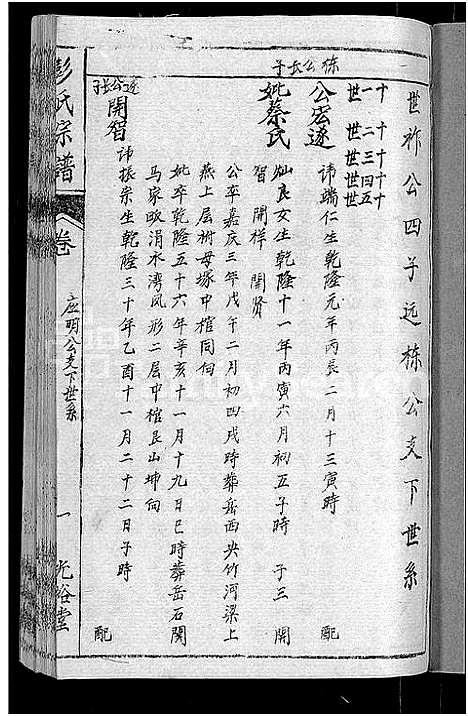 世祚公四子远栋公支下世系
十一世
十二世
十三世
十四世
十五世
栋公长子
公宏遂 讳瑞仁生乾隆元年丙辰二月十三寅時 配
妣蔡氏 灿良女生乾隆十一年丙寅六月初五子時 子三 開
智 開祥 開贤
公卒嘉庆三年戊午二月初四戌時葬岳西央竹河梁上
燕上层树母塚中棺同向
妣卒乾隆五十六年辛亥十一月十九日巳時葬岳石関
马家畈涓水湾凤形二层中棺艮山坤向
遂公长
開智 讳振宗生乾隆三十年乙酉十一月二十二日子時 配
彭氏宗譜
卷
应明公支下世系
一
光裕堂